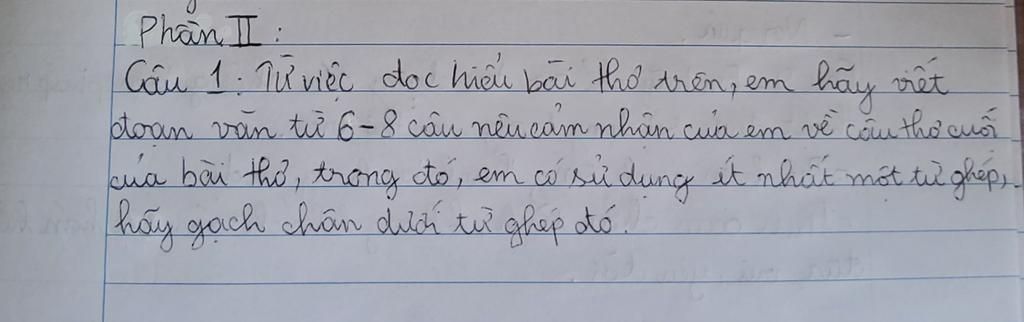 Phần II :
Câu 1 : Từ việc đọc hiểu bài thơ trên, em hãy viết
đoạn văn từ 6-8 câu nêu cảm nhận của em về câu thơ cuối
của bài thơ, trong đó, em có sử dụng ít nhất một từ ghép,
hãy gạch chân dưới từ ghép đó.